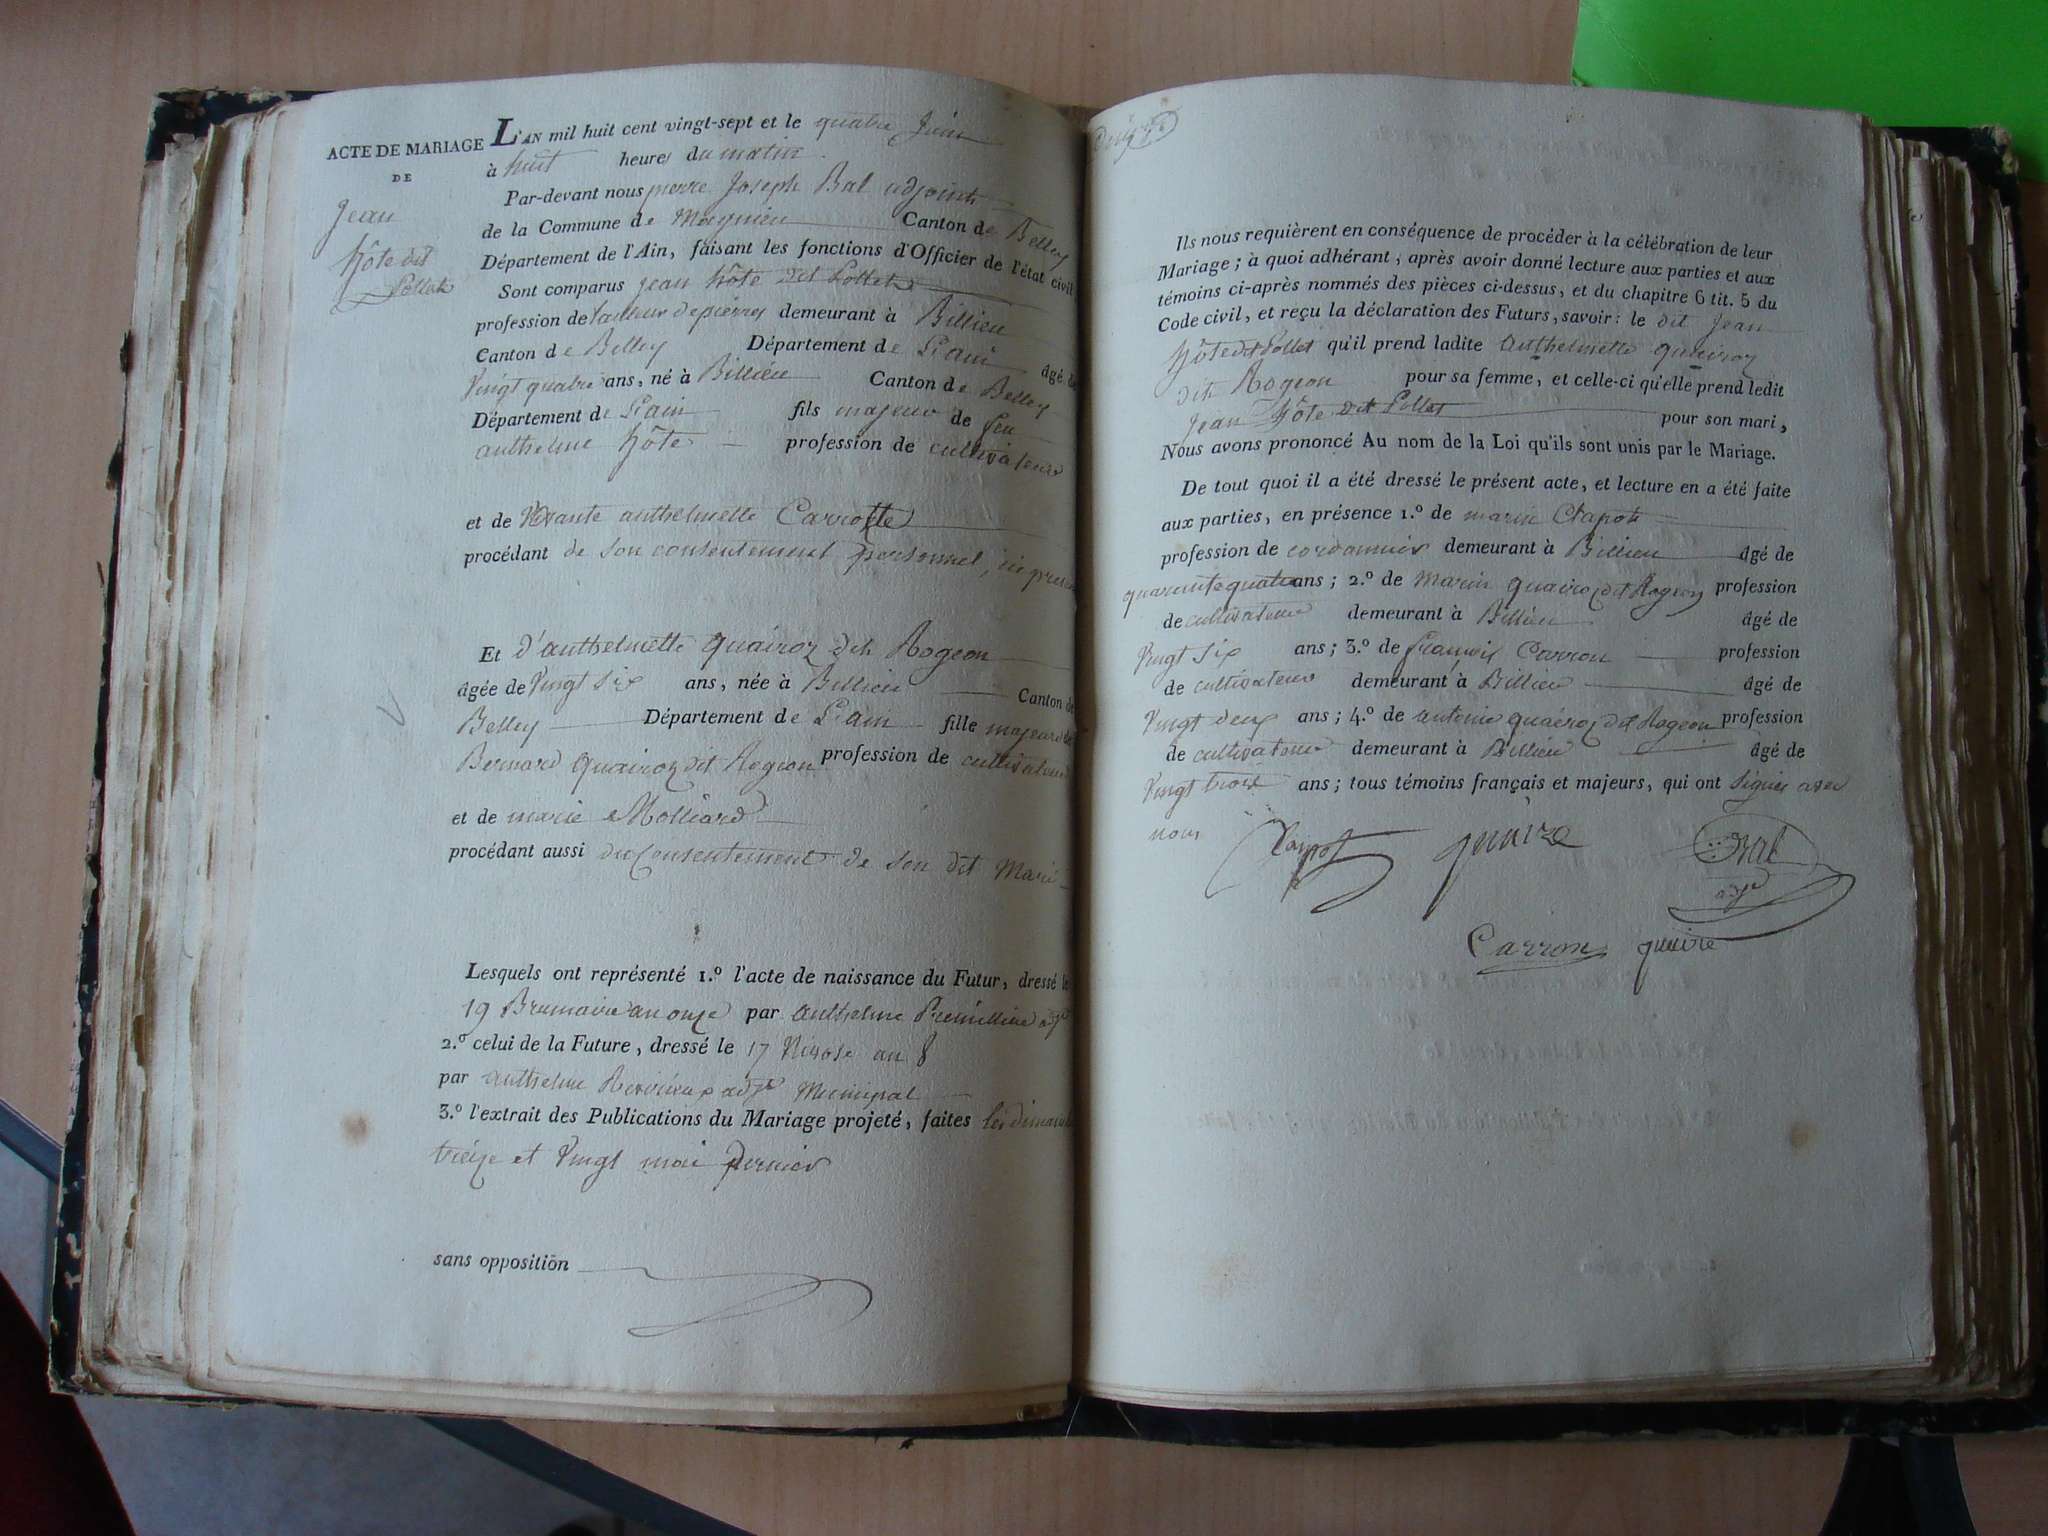 ACTE DE MARIAGE
DE
Jean
hôte dit
Pollet
L'AN mil huit cent vingt-sept et le quatre Juin
à huit heures du matin.
Par-devant nous pierre Joseph Bal adjoint
de la Commune de Magnieu Canton de Belley
Département de l'Ain, faisant les fonctions d'Officier de l'état civil
Sont comparus jean hôte dit Pollet
profession de tailleur de pierres demeurant à Billieu
Canton de Belley Département de L'ain âgé de
Vingt quatre ans, né à Billieu Canton de Belley
Département de L'ain fils majeur de feu
anthelme hôte profession de cultivateur
et de Vivante anthelmette Carrotte
procédant de son consentement personnel, en
Et d'anthelmette quairoz dit Rogeon
âgée de Vingt Six ans, née à Billieu Canton de
Belley Département de L'ain fille majeure de
Bernard quairoz dit Rogeon profession de cultivateur
et de marie Molliard
procédant aussi du Consentement de son dit Mari
Lesquels ont représenté 1.º l'acte de naissance du Futur, dressé le
19 Brumaire an onze par anthelme adjt
2.º celui de la Future, dressé le 17 Nivose an 8
par anthelme adjt Municipal
3.º l'extrait des Publications du Mariage projeté, faites les
treize et Vingt mai dernier
sans opposition
Ils nous requièrent en conséquence de procéder à la célébration de leur
Mariage; à quoi adhérant, après avoir donné lecture aux parties et aux
témoins ci-après nommés des pièces ci-dessus, et du chapitre 6 tit. 5 du
Code civil, et reçu la déclaration des Futurs, savoir: le dit Jean
hôte dit Pollet qu'il prend ladite anthelmette quairoz
dit Rogeon pour sa femme, et celle-ci qu'elle prend ledit
Jean hôte dit Pollet pour son mari,
Nous avons prononcé Au nom de la Loi qu'ils sont unis par le Mariage.
De tout quoi il a été dressé le présent acte, et lecture en a été faite
aux parties, en présence 1.º de marin Clapot
profession de cordonnier demeurant à Billieu âgé de
quarante quatre ans; 2.º de Marin quairoz dit Rogeon profession
de cultivateur demeurant à Billieu âgé de
Vingt Six ans; 3.º de françois Carron profession
de cultivateur demeurant à Billieu âgé de
Vingt deux ans; 4.º de antoine quairoz dit Rogeon profession
de cultivateur demeurant à Billieu âgé de
Vingt trois ans; tous témoins français et majeurs, qui ont Signés avec
nous
Clapot quaire Bal
adjt
Carron quaire